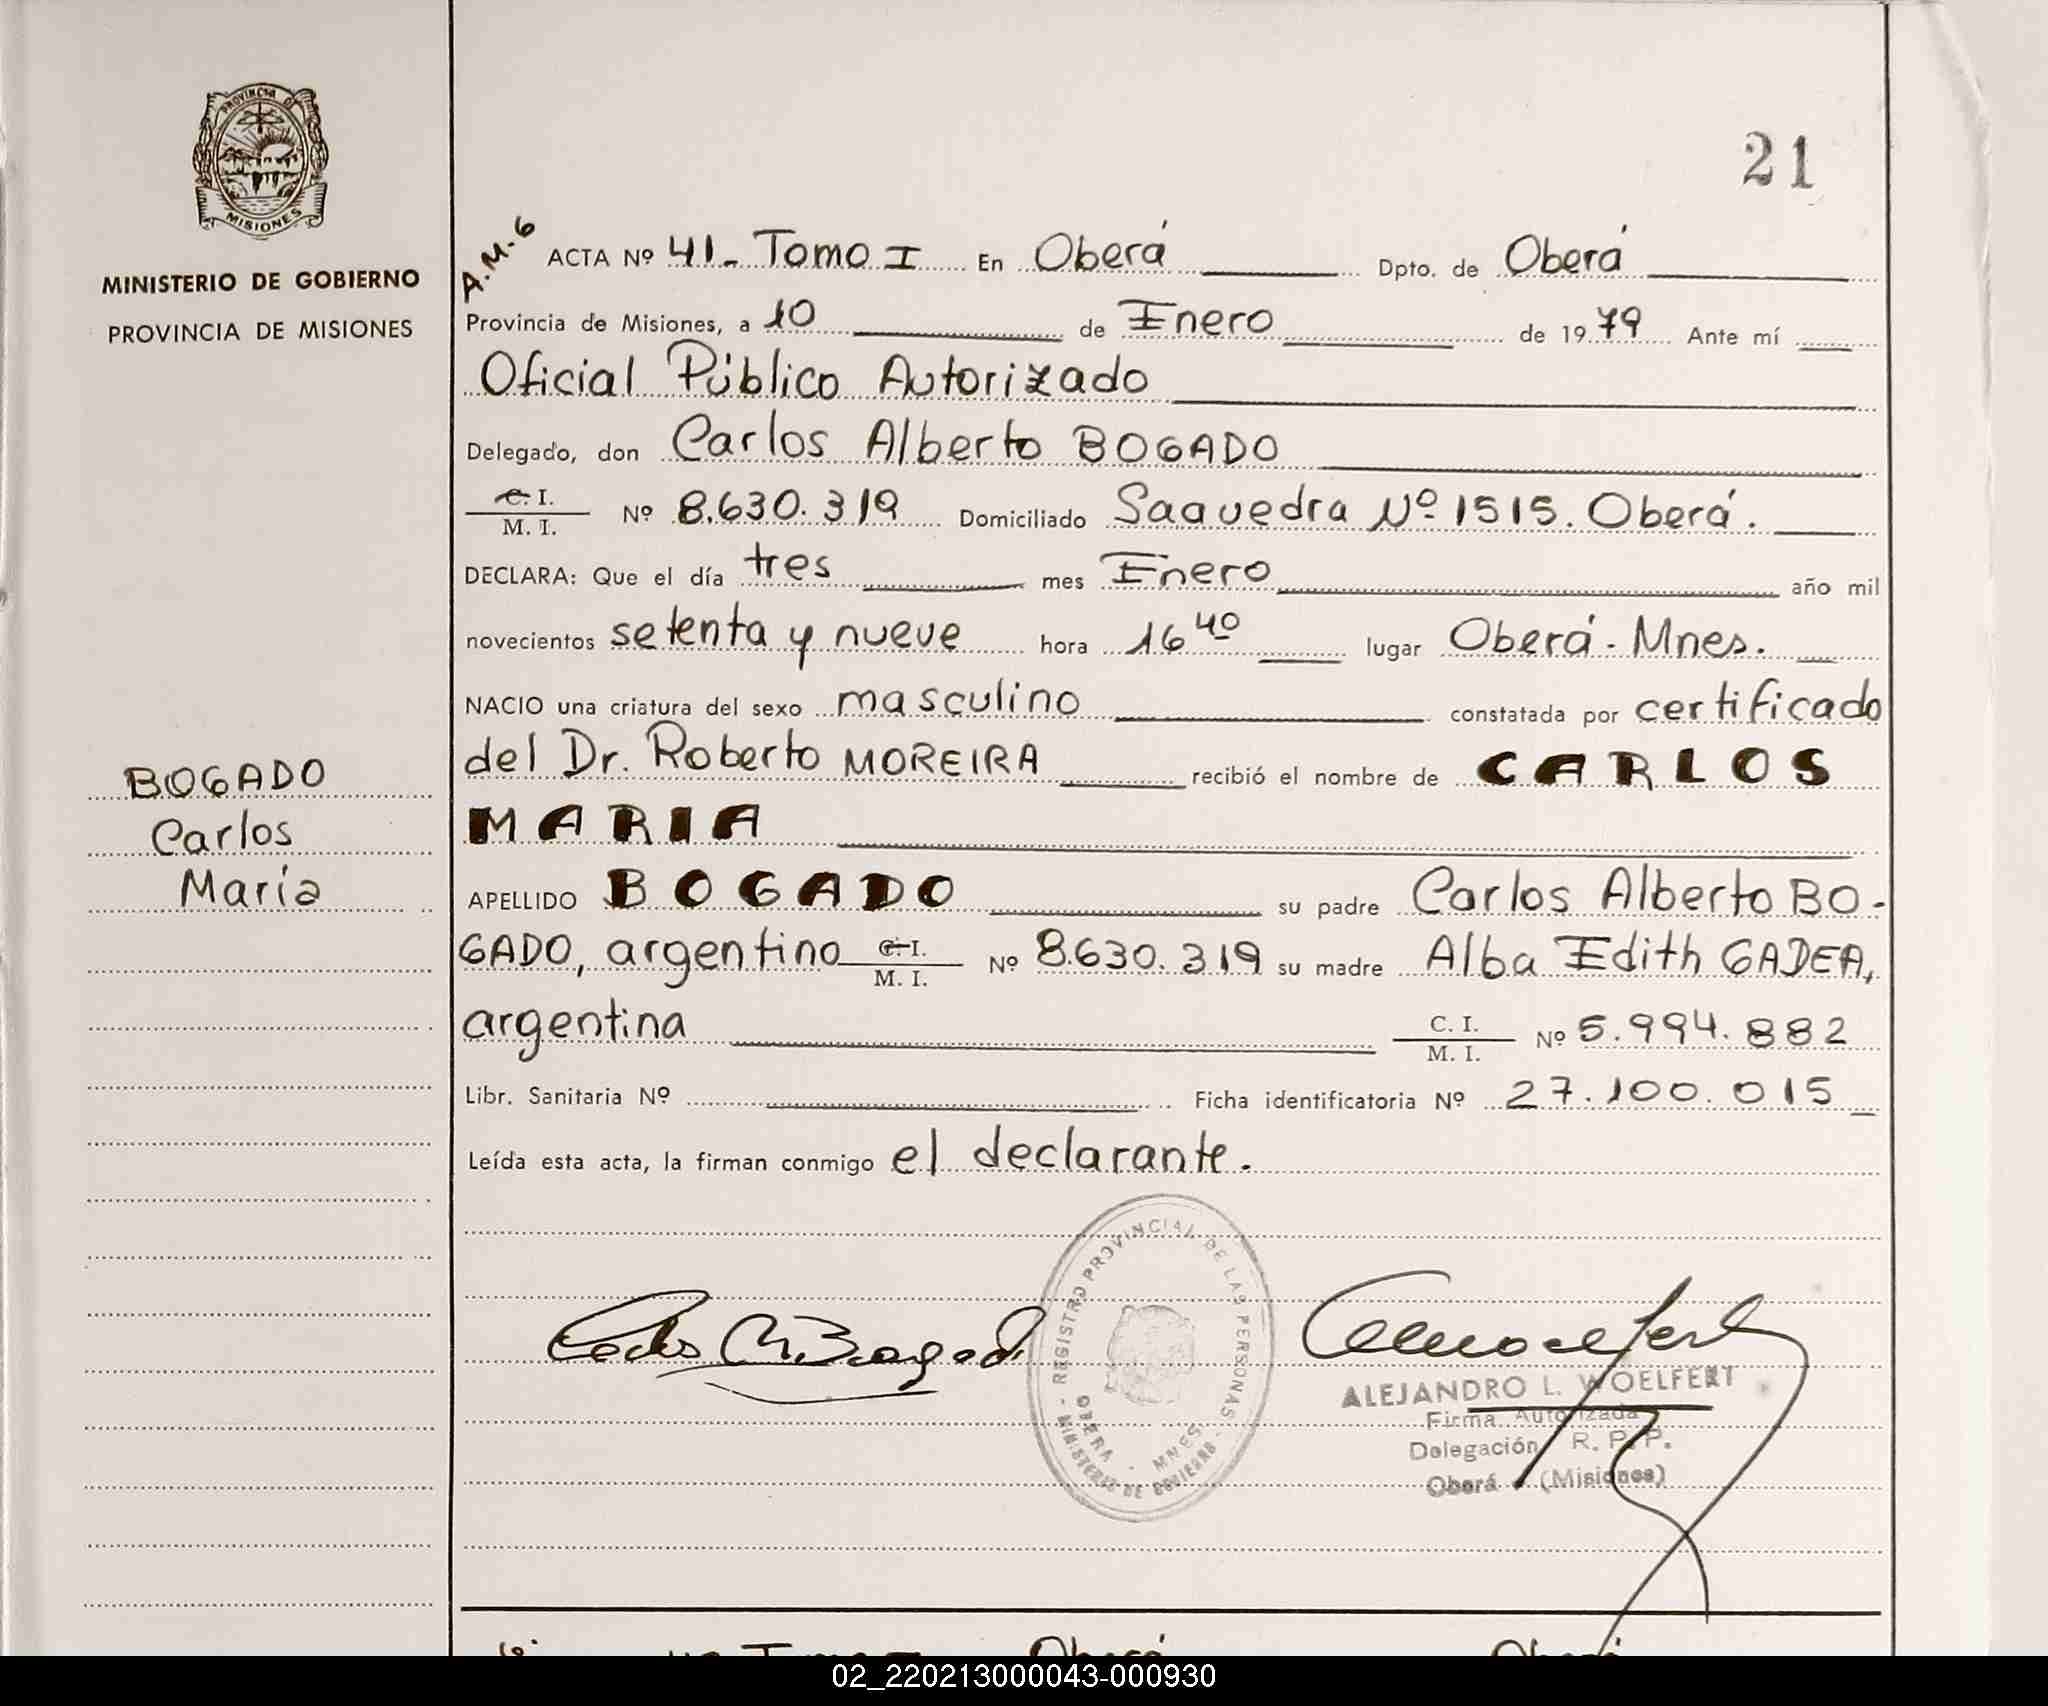 PROVINCIA DE
MISIONES
MINISTERIO DE GOBIERNO
PROVINCIA DE MISIONES
21
A.M.6
ACTA Nº 41 - Tomo I En Oberá Dpto. de Oberá
Provincia de Misiones, a 10 de Enero de 1979 Ante mí
Oficial Público Autorizado
Delegado, don Carlos Alberto BOGADO
C. I.
M. I. Nº 8.630.319 Domiciliado Saavedra Nº 1515. Oberá.
DECLARA: Que el día tres mes Enero año mil
novecientos setenta y nueve hora 16 40 lugar Oberá - Mnes.
NACIO una criatura del sexo masculino constatada por certificado
del Dr. Roberto MOREIRA recibió el nombre de CARLOS
MARIA
APELLIDO BOGADO su padre Carlos Alberto BO-
GADO, argentino C. I. M. I. Nº 8.630.319 su madre Alba Edith GADEA,
argentina C. I. M. I. Nº 5.994.882
Libr. Sanitaria Nº Ficha identificatoria Nº 27.100.015
Leída esta acta, la firman conmigo el declarante.
BOGADO
Carlos
María
REGISTRO PROVINCIAL DE LAS PERSONAS
OBERA - MNES.
MINISTERIO DE GOBIERNO
ALEJANDRO L. WOELFERT
Firma Autorizada
Delegación R. P. P.
Oberá (Misiones)
Tomo I Oberá Oberá
02_220213000043-000930